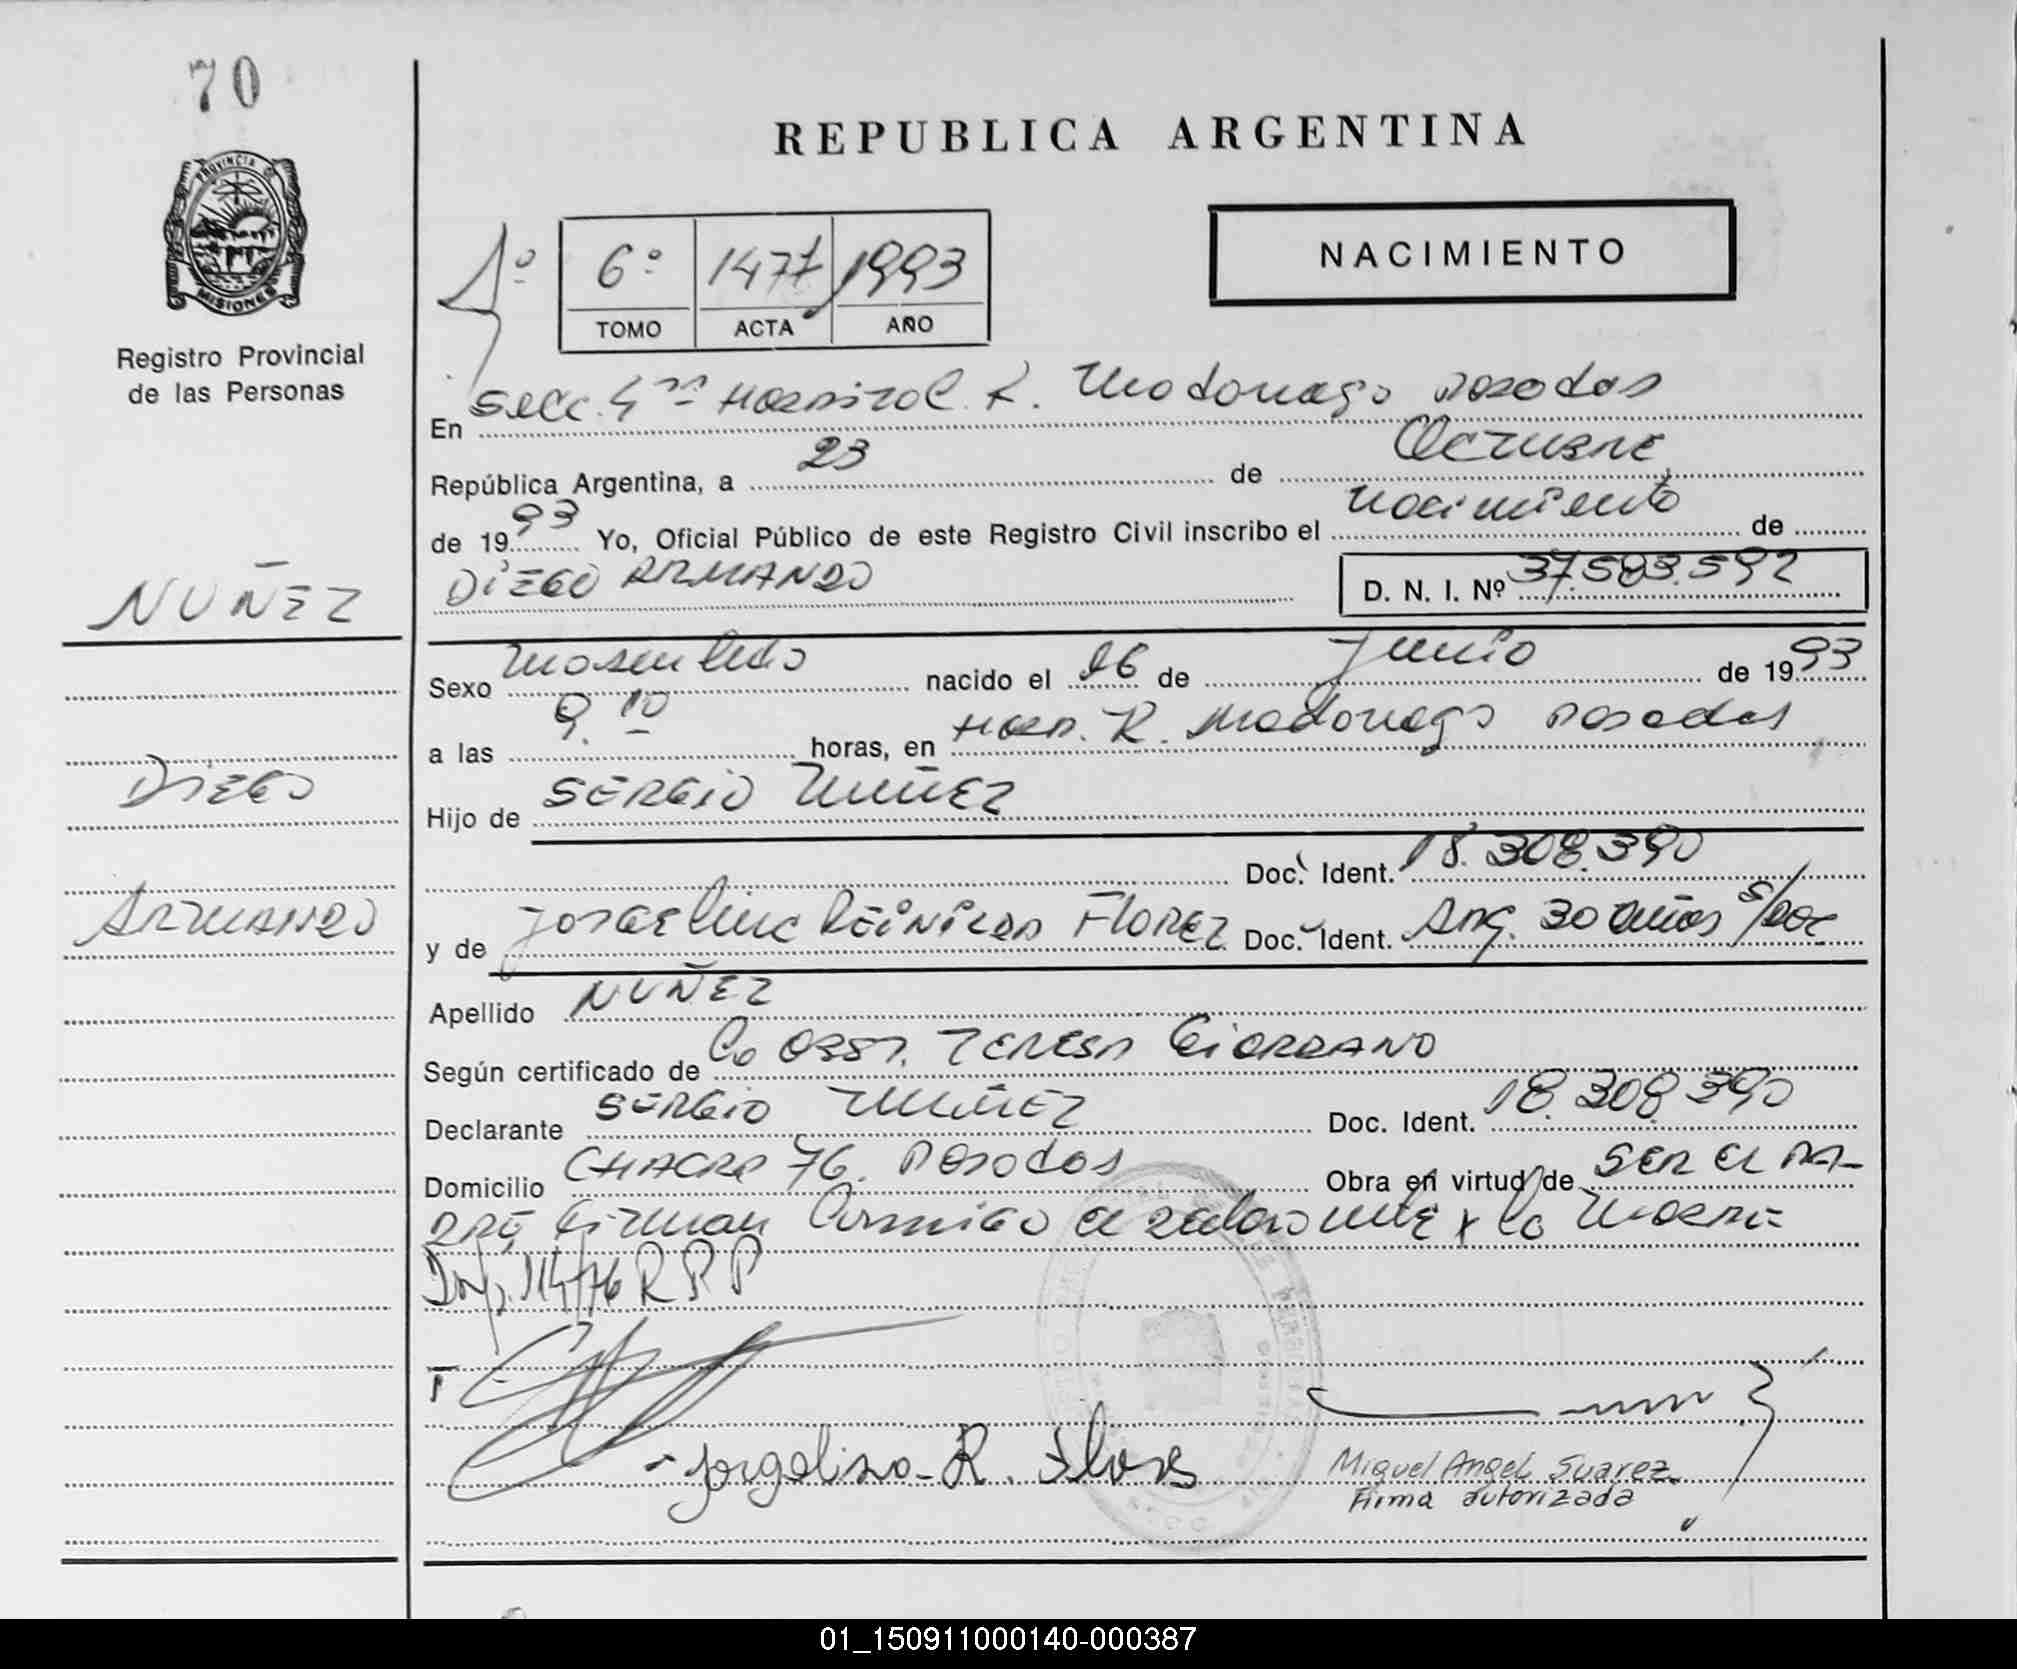 70
REPUBLICA ARGENTINA
PROVINCIA DE
MISIONES
Registro Provincial
de las Personas
6º 1477 1993
TOMO ACTA AÑO
NACIMIENTO
En Secc. 4ta Hospital R. Madariaga Posadas
República Argentina, a 23 de Octubre
de 1993 Yo, Oficial Público de este Registro Civil inscribo el nacimiento de
DIEGO ARMANDO D. N. I. Nº 37.583.592
NUÑEZ
DIEGO
ARMANDO
Sexo masculino nacido el 16 de Junio de 1993
a las 9.10 horas, en Hosp. R. Madariaga Posadas
Hijo de SERGIO NUÑEZ
Doc. Ident. 18.308.390
y de FLOREZ Doc. Ident. Arg. 30 años s/doc
Apellido NUÑEZ
Según certificado de la Obst. TERESA GIORDANO
Declarante SERGIO NUÑEZ Doc. Ident. 18.308.390
Domicilio CHACRA 76. Posadas Obra en virtud de SER EL PA-
DRE, Firman Conmigo el declarante y la Madre
Disp. 114/76 R P P
Jorgelina R. Flores
Miguel Angel Suarez
Firma autorizada
01_150911000140-000387